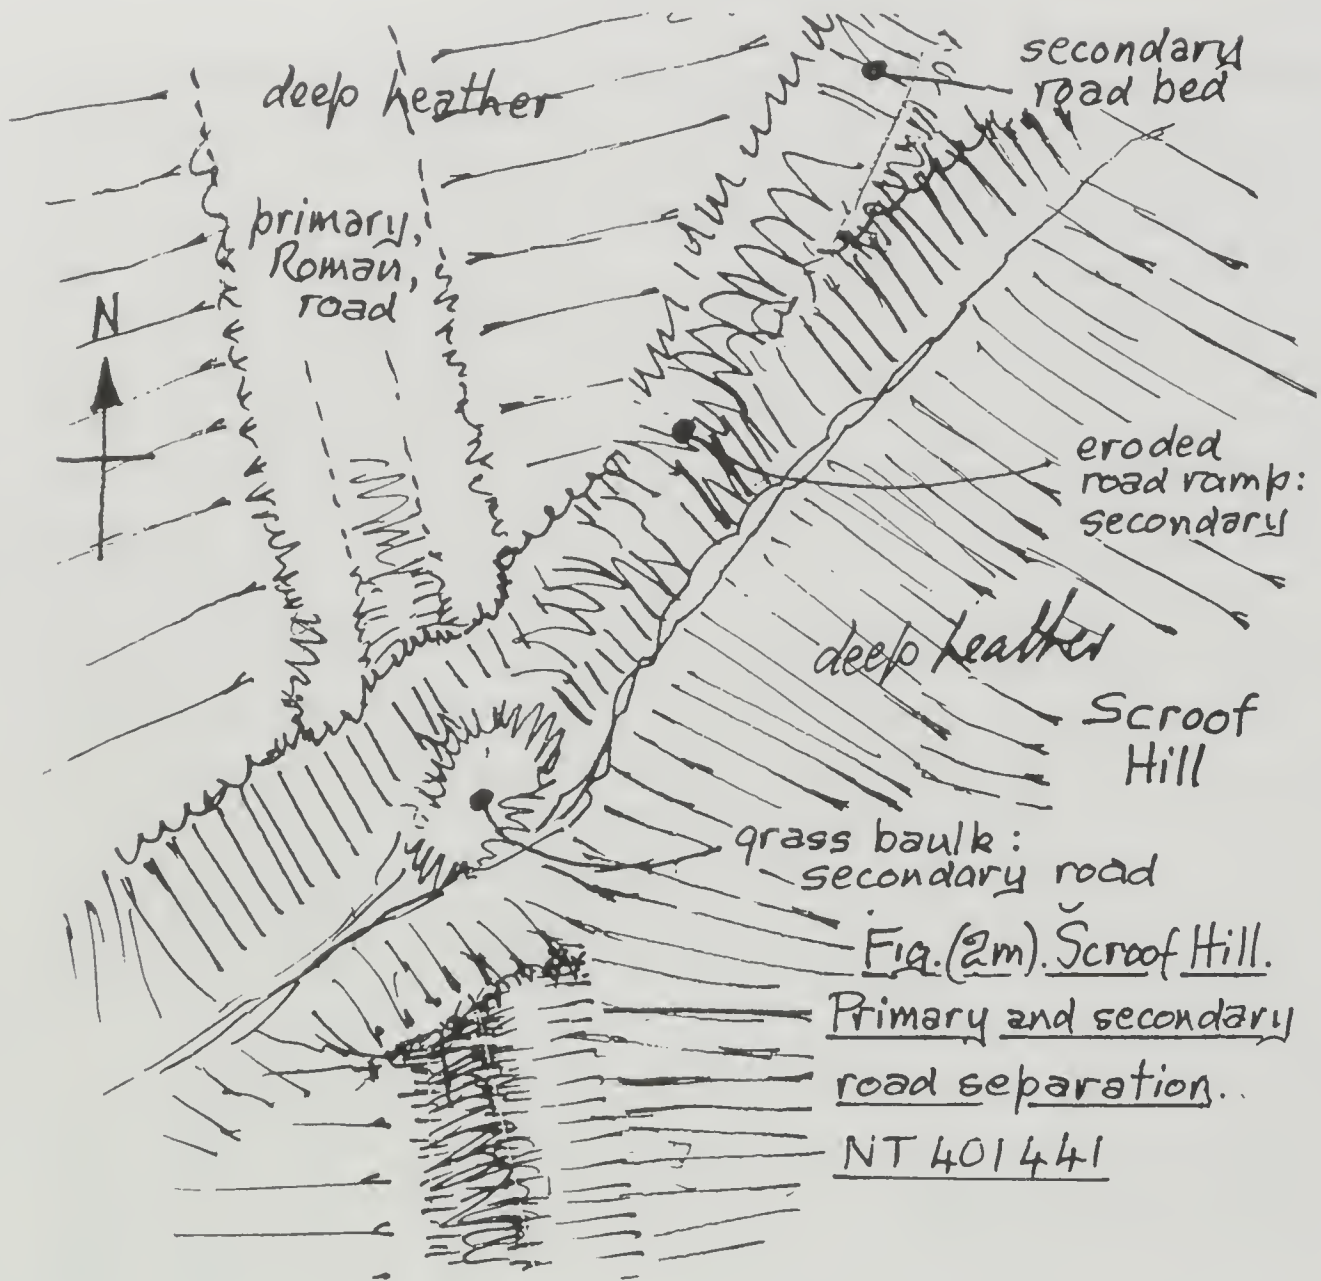 secondary
road bed
deep heather
primary,
Roman,
road
N
eroded
road ramp:
secondary
deep heather
Scroof
Hill
grass baulk:
secondary road
Fig.(2m). Scroof Hill.
Primary and secondary
road separation.
NT 401441